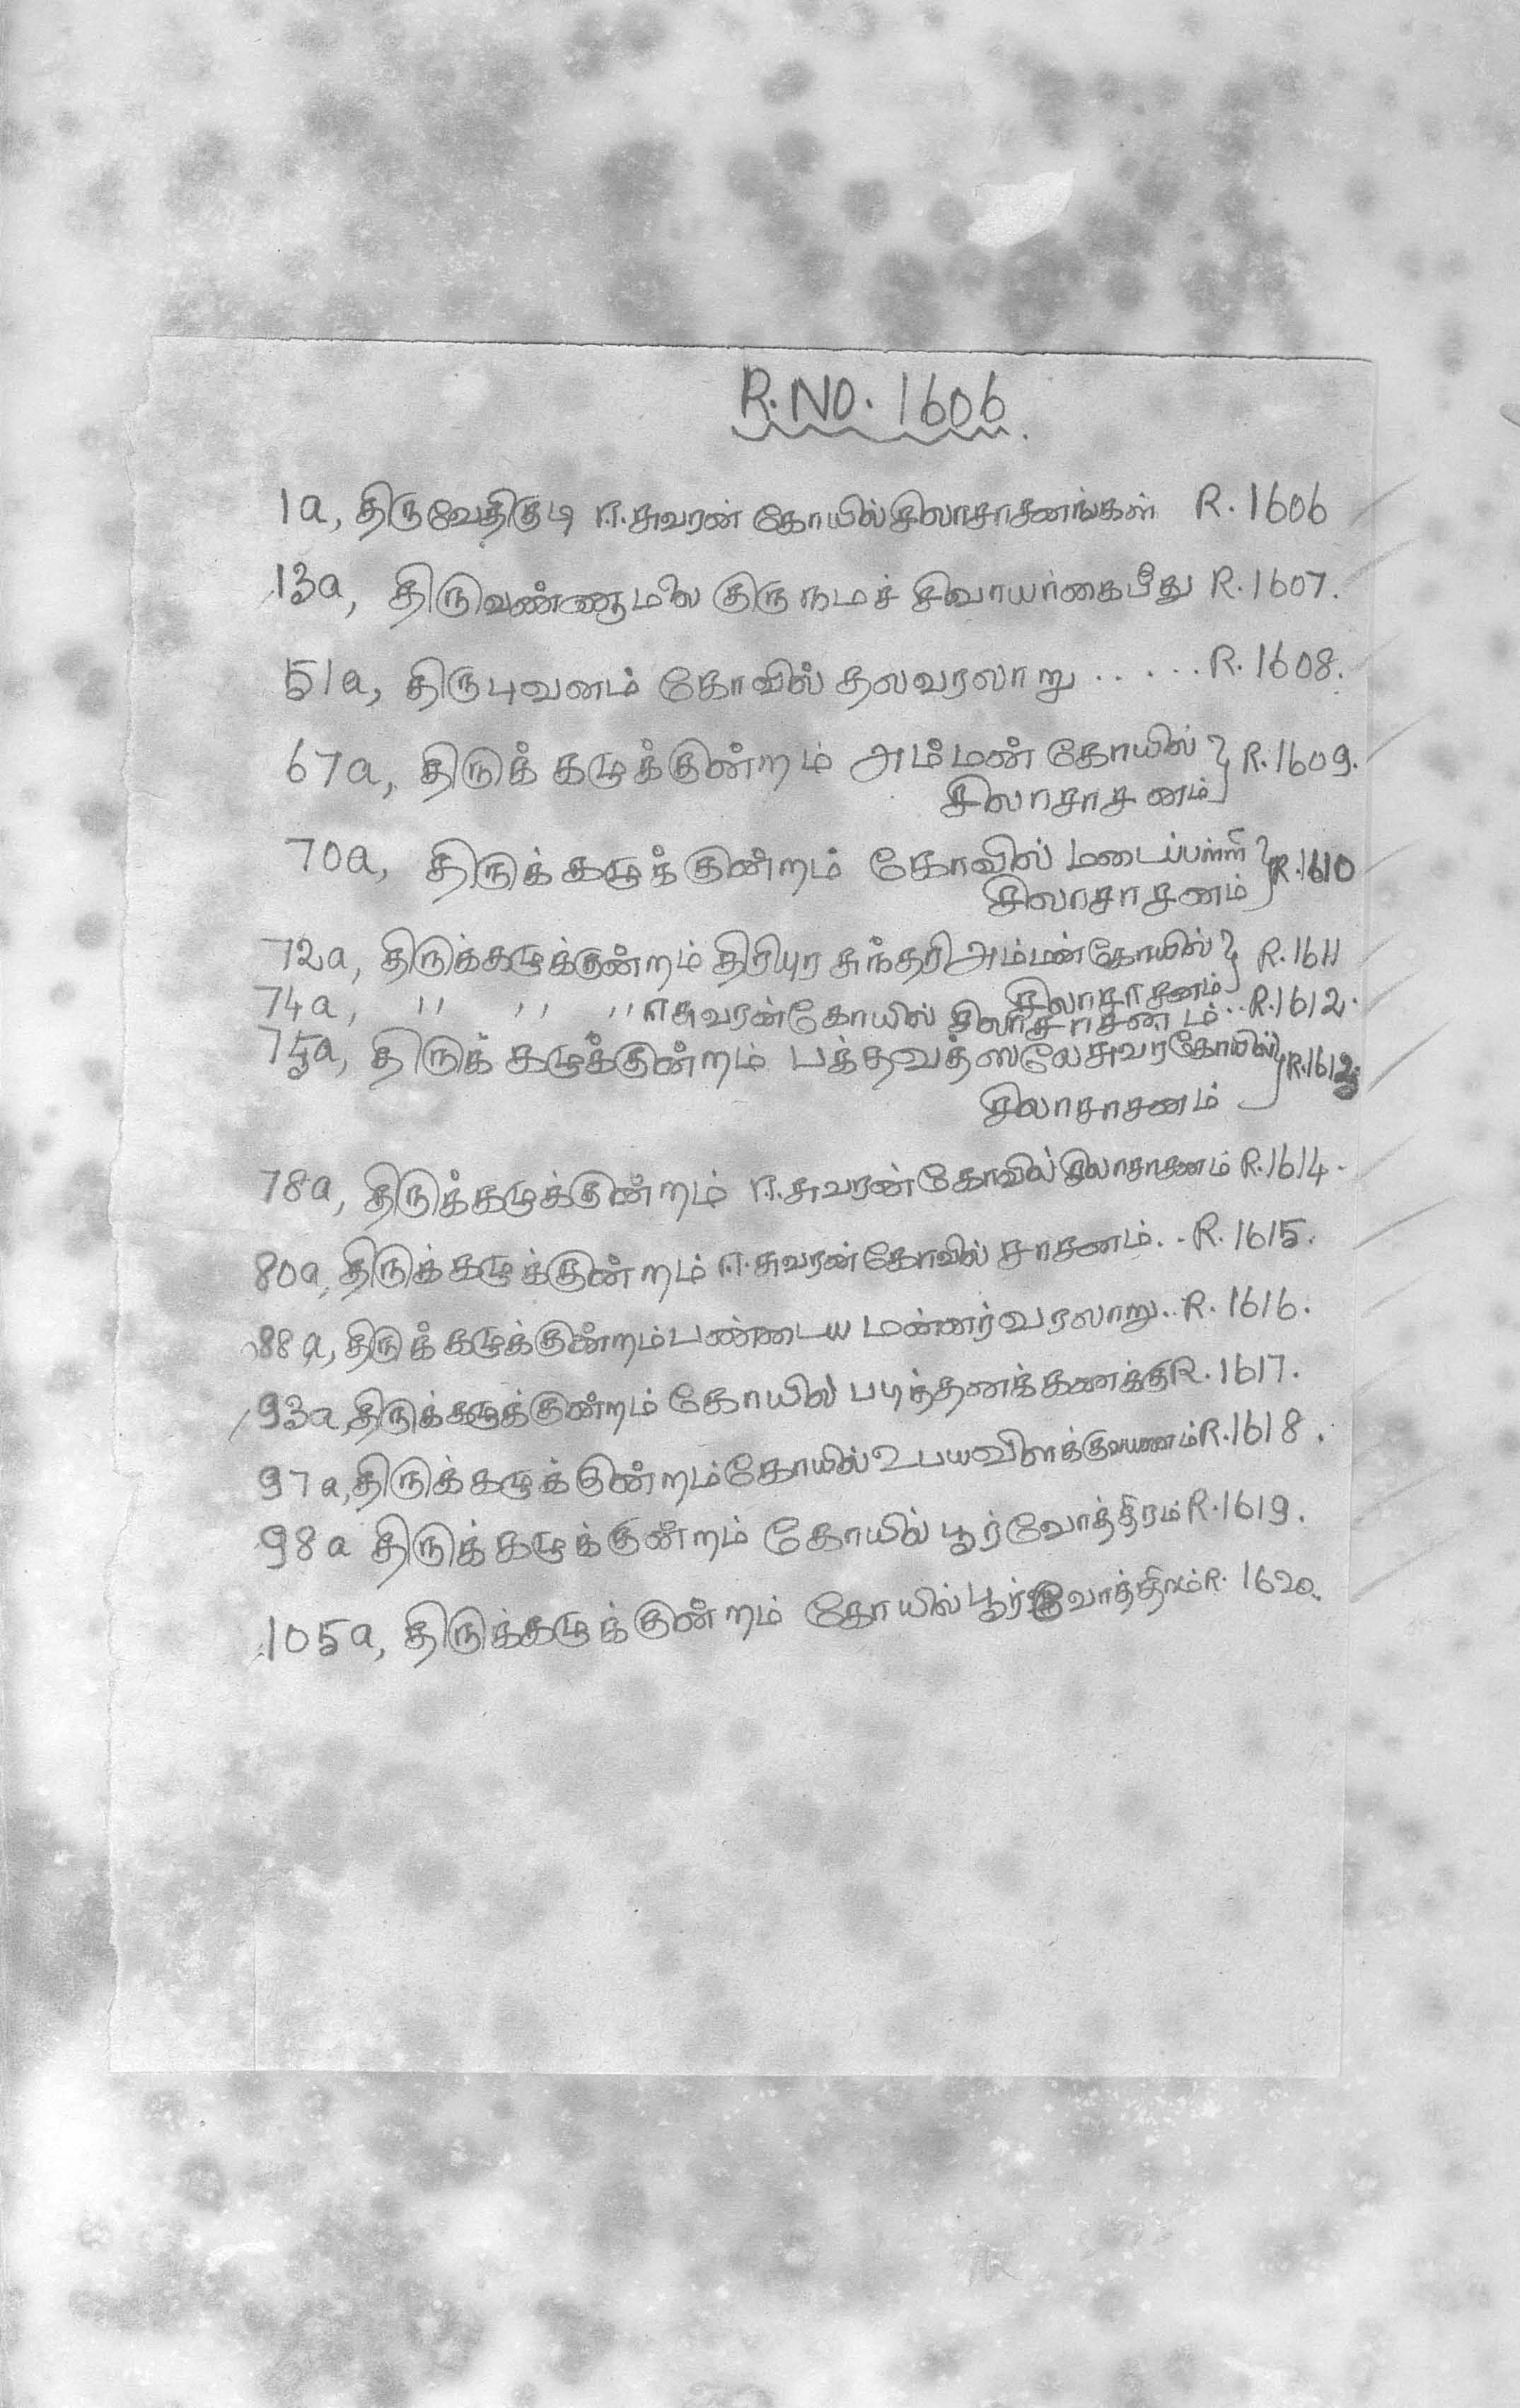 R.NO. 1606
1a, திருவேதிகுடி ஈசுவரன் கோயில் சிலாசாசனங்கள் R. 1606
13a, திருவண்ணாமலை குரு நமச் சிவாயர்கைபீது R. 1607.
51a, திருபுவனம் கோவில் தலவரலாறு ..... R. 1608.
67a, திருக் கழுக்குன்றம் அம்மன் கோயில் } R. 1609.
சிலாசாசனம்
70a, திருக் கழுக் குன்றம் கோவில் மடைப்பள்ளி } R. 1610
சிலாசாசனம்
72a, திருக்கழுக்குன்றம் திரிபுர சுந்தரி அம்மன்கோயில் } R. 1611
சிலாசாசனம்
74a, " " " ஈசுவரன்கோயில் சிலாசாசனம் .. R. 1612.
75a, திருக் கழுக்குன்றம் பக்தவத்ஸலேசுவரகோயில் } R. 1613
சிலாசாசனம்
78a, திருக்கழுக்குன்றம் ஈசுவரன்கோவில் சிலாசாசனம் R. 1614.
80a, திருக்கழுக்குன்றம் ஈசுவரன்கோவில் சாசனம் .. R. 1615.
88a, திருக் கழுக்குன்றம் பண்டைய மன்னர் வரலாறு .. R. 1616.
93a, திருக்கழுக்குன்றம் கோயில் படித்தனக்கணக்கு R. 1617.
97a, திருக்கழுக்குன்றம் கோயில் உபயவிளக்கு R. 1618.
98a திருக்கழுக்குன்றம் கோயில் பூர்வோத்திரம் R. 1619.
105a, திருக்கழுக்குன்றம் கோயில் பூர்வோத்திரம் R. 1620.